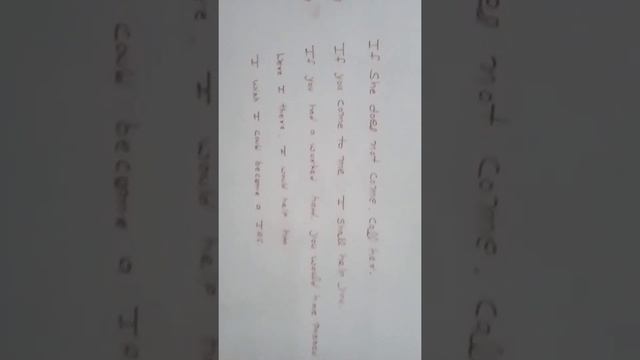 If She does not come, call her.
If you come to me I shall help you.
If you had a worked hard, you would have passed
Were I there, I would help him
I wish I could become a IAS.